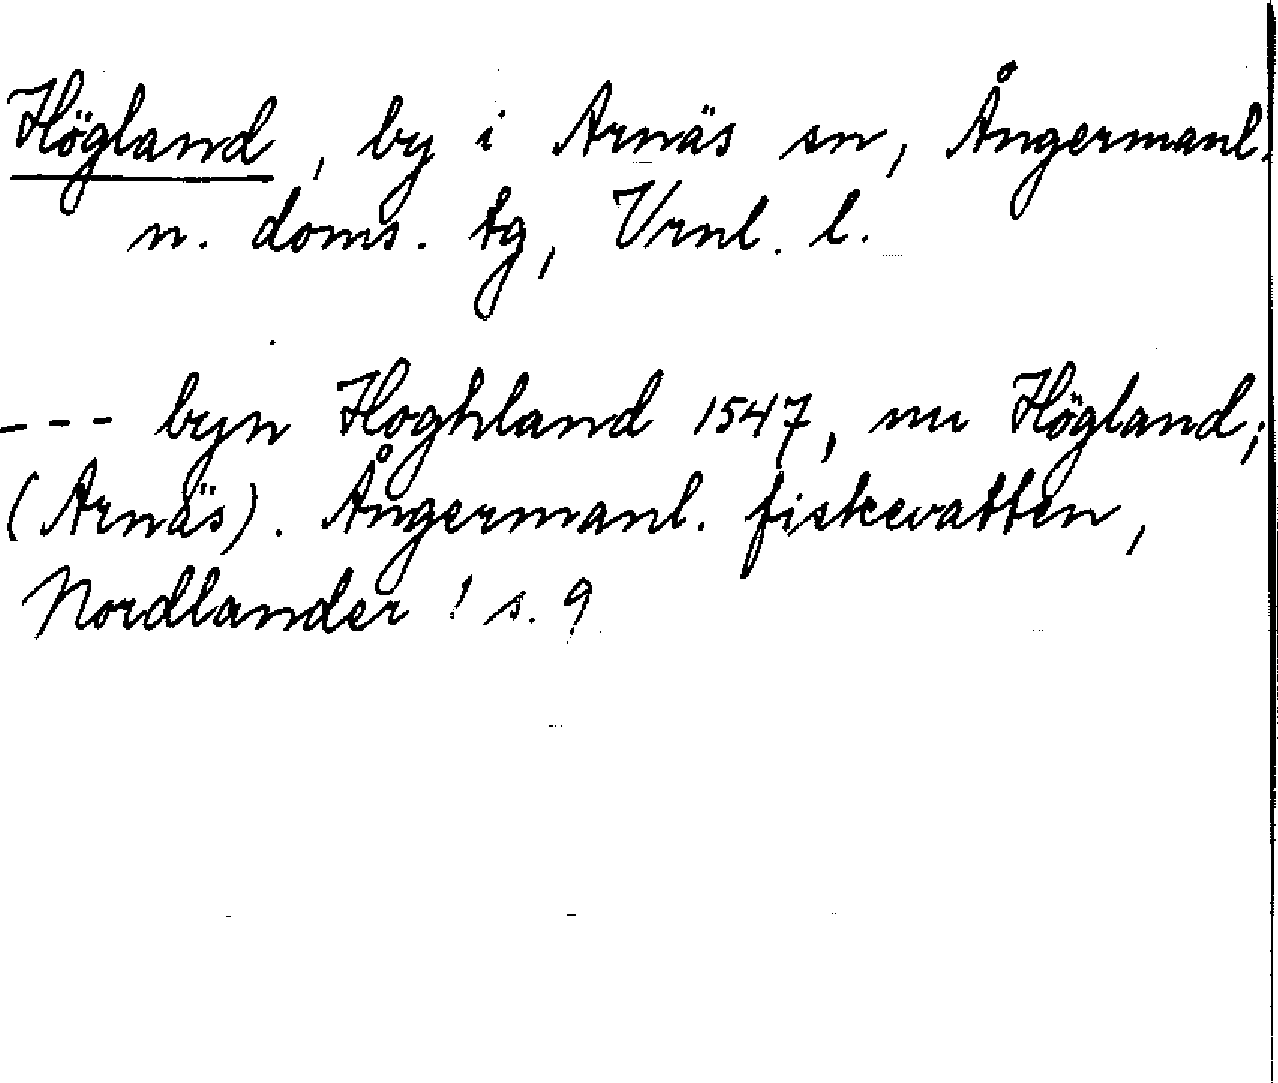 Högland, by i Arnäs sn, Ångermanl.
n. doms. tg, Vrnl. l.
--- byn Hoghland 1547, nu Högland;
(Arnäs). Ångermanl. fiskevatten,
Nordlander ! s. 9